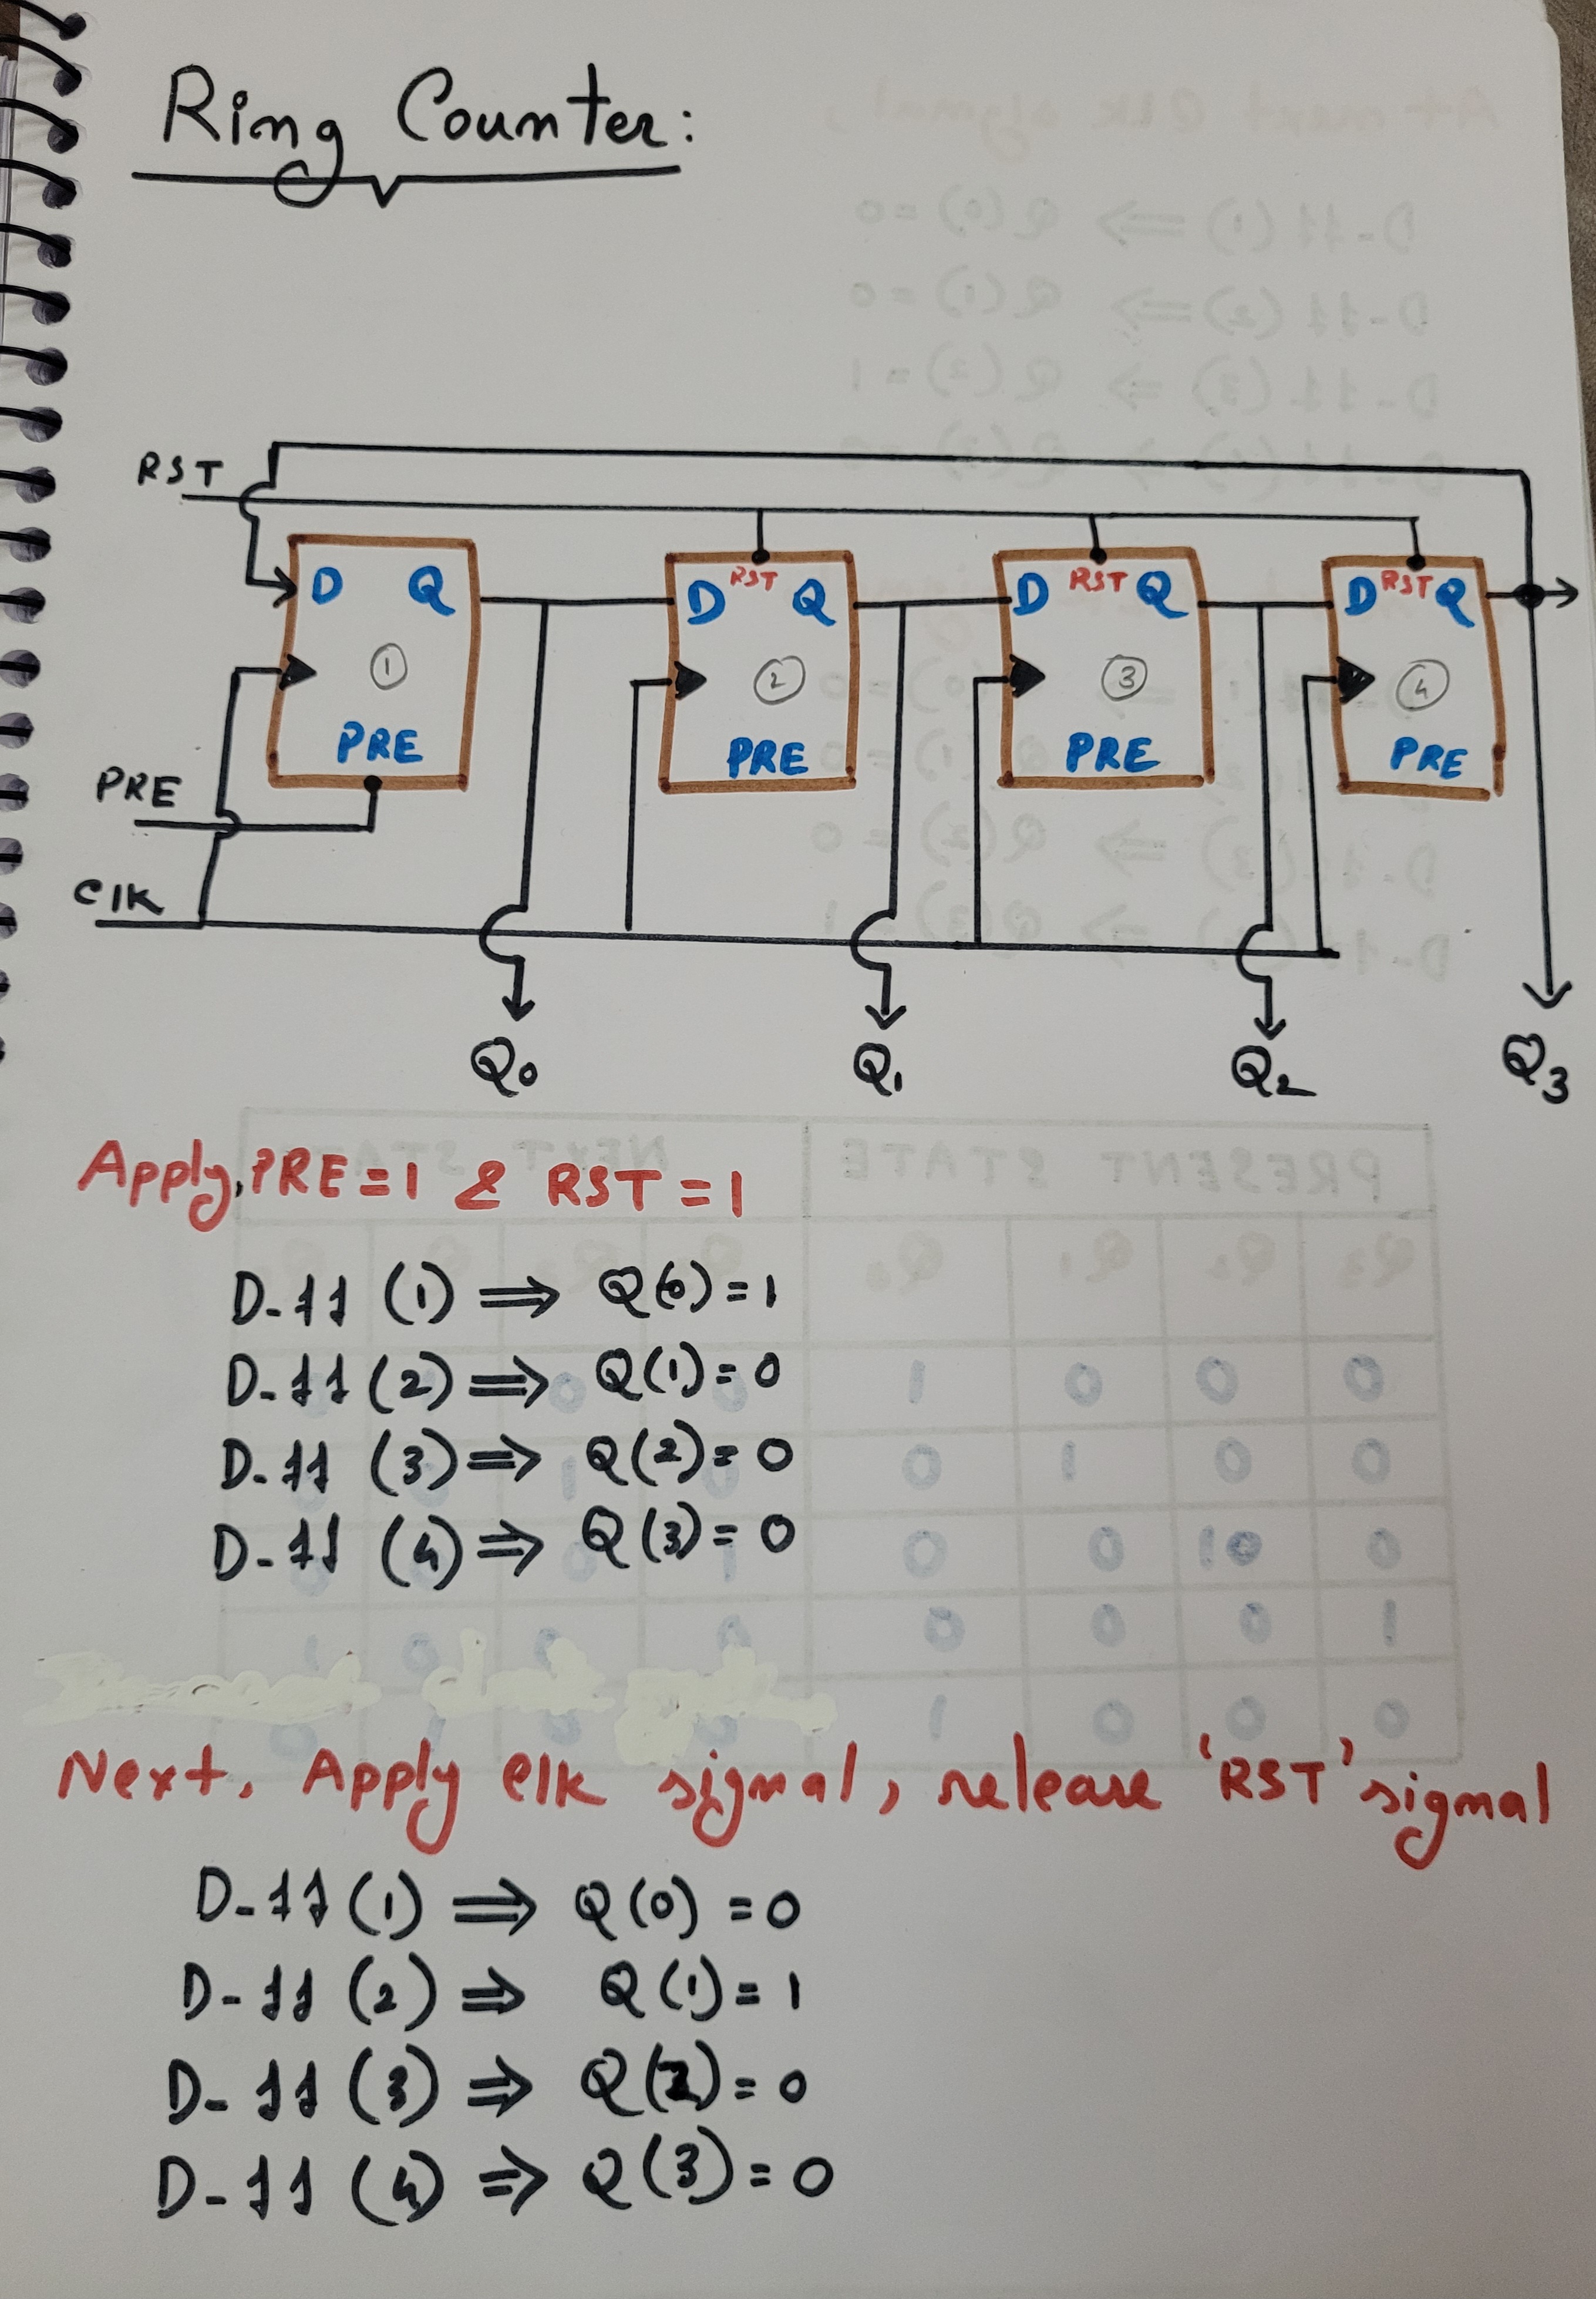 Ring Counter:
RST
D Q
D RST Q
D RST Q
D RST Q
1
2
3
4
PRE
PRE
PRE
PRE
PRE
Clk
Q0
Q1
Q2
Q3
Apply, PRE = 1 & RST = 1
D-ff (1) ⇒ Q(0) = 1
D-ff (2) ⇒ Q(1) = 0
D-ff (3) ⇒ Q(2) = 0
D-ff (4) ⇒ Q(3) = 0
Next, Apply clk signal, release 'RST' signal
D-ff (1) ⇒ Q(0) = 0
D-ff (2) ⇒ Q(1) = 1
D-ff (3) ⇒ Q(2) = 0
D-ff (4) ⇒ Q(3) = 0